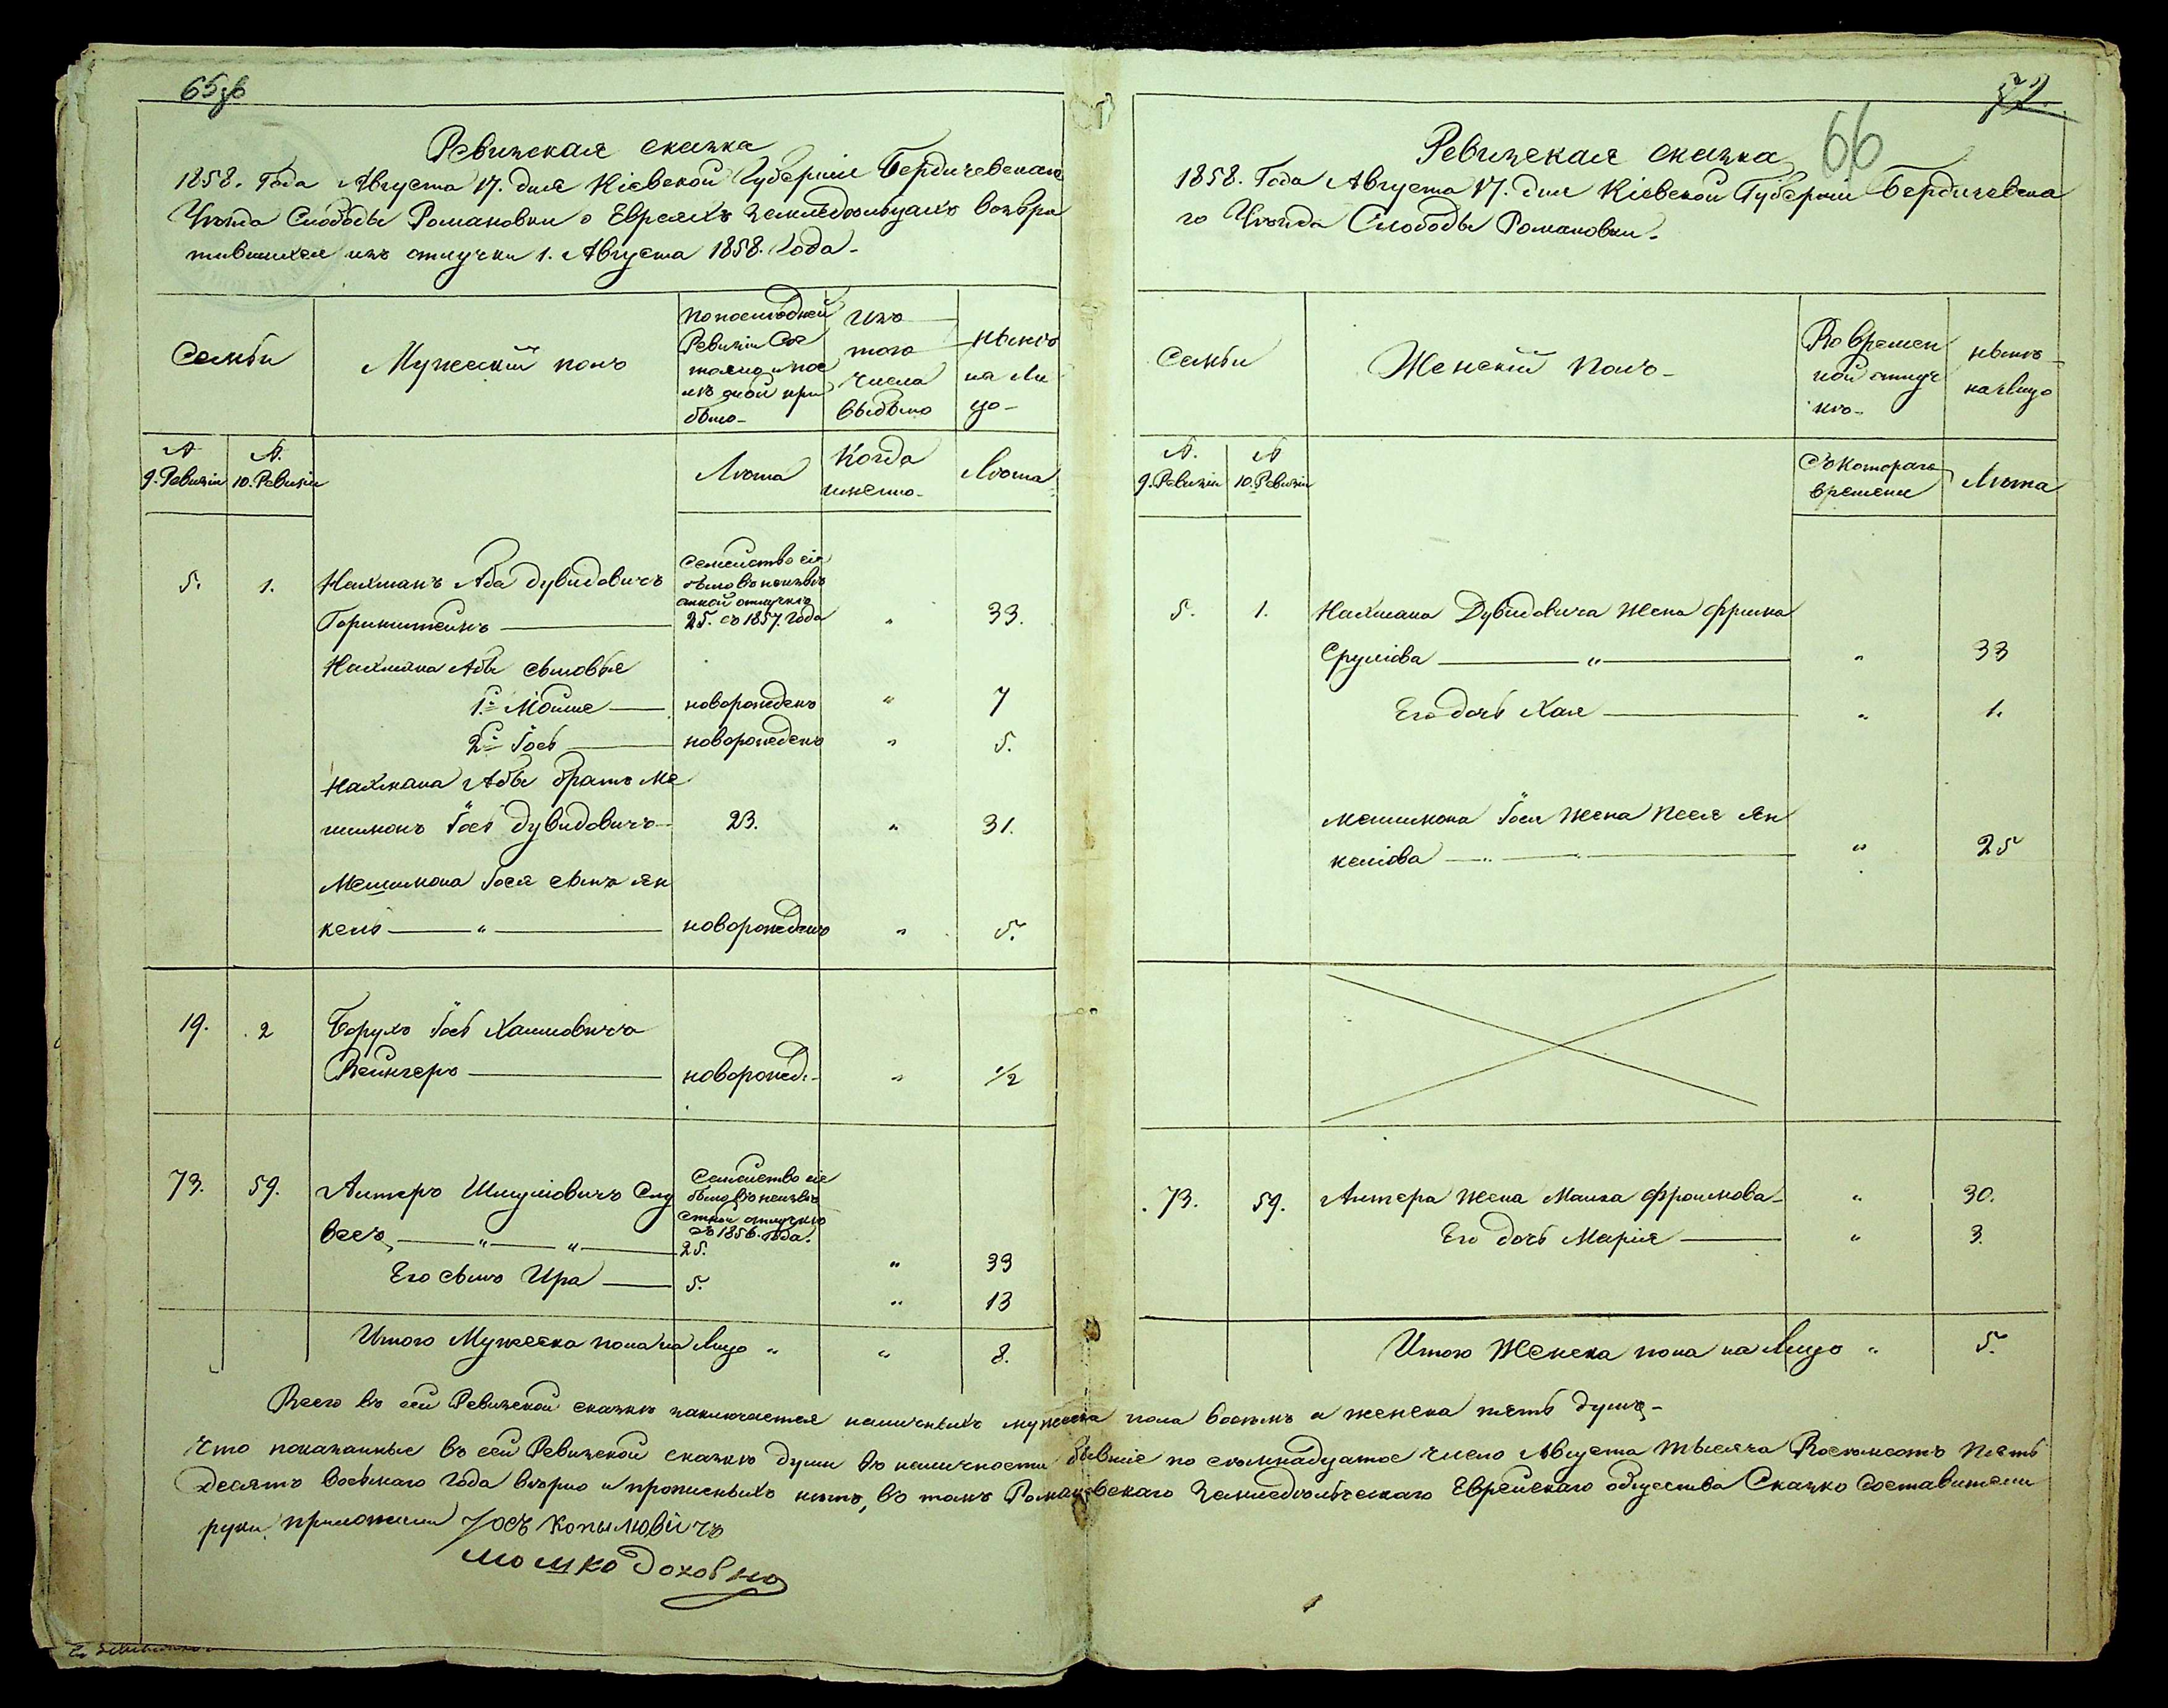 65об
Ревизская сказка
1858. Года Августа 17. дня Кіевской Губерніи Бердичевскаго
Уѣзда Слободы Романовки о Евреяхъ земледѣльцахъ возвра
тившихся изъ отлучки 1. Августа 1858. Года-
Семьи
Мужескій полъ
По последней Ревизіи Сос тояло и пос лѣ оной при было-
Изъ того числа выбыло
нынѣ на Ли цо-
№ 9. Ревизіи
№. 10. Ревизіи
Лѣта
Когда имянно-
Лѣта
5. 1. Нахманъ Аба Дувидовичъ
Семейство сіе было въ неизвѣ стной отлучкѣ
Горинштейнъ 25. съ 1857. Года " 33.
Нахмана Абы сыновья
1й Мойше новорожденъ " 7
2й Іось новорожденъ " 5.
Нахмана Абы братъ Ме
шимонъ Іось Дувидовичъ- 23. " 31.
Мешимона Іося сынъ Ян
кель " новорожденъ " 5.
19. 2 Борухъ Іось Хаимовичъ
Вейнгеръ новорожд.- " 1/2
73. 59. Антеръ Шмулiовичъ Слу
Семейство сіе было въ неизвѣ стной отлучкѣ съ 1856. года.
весъ " " 25. " 33
Его сынъ Ира 5. " 13
Итого Мужеска пола на Лицо " " 8.
72.
66
Ревизская сказка
1858. Года Августа 17. дня Кіевской Губерніи Бердичевска
го Уѣзда Слободы Романовки.
Семьи
Женскій Полъ-
Во времен ной отлуч кѣ-
нынѣ на лицо
№. 9. Ревизіи
№ 10. Ревизіи
Съ котораго времени
Лѣта
5. 1. Нахмана Дувидовича жена Фрима
Срулiова " " 33
Его дочь Хая " 1.
Мешимона Іося жена Песя Ян
келiова " " 25
73. 59. Антера жена Малка Фроимова- " 30.
Его дочь Марія " 3.
Итого Женска пола на Лицо " 5.
Всего въ сей Ревизской сказкѣ заключается наличныхъ мужеска пола восемь а женска пять душъ-
Что показанные въ сей Ревизской сказкѣ души въ наличности бывшіе по семнадцатое число Августа Тысяча Восемьсотъ Пять
десятъ восьмаго Года вѣрно и прописныхъ нѣтъ, въ томъ Романовскаго Земледѣльческаго Еврейскаго общества Сказко составители
руки приложили Іось Копылювичъ
Мошко Доховно